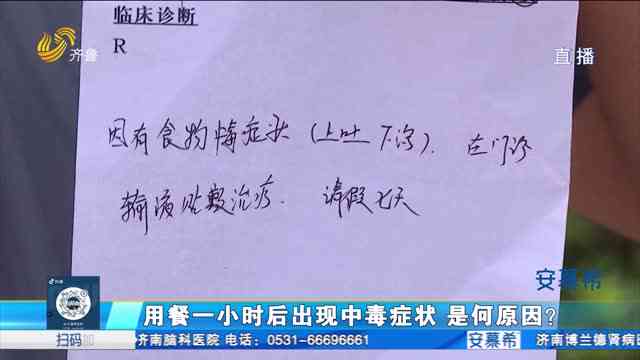 临床诊断
R
齐鲁
直播
因有食物毒症状（上吐下泻）. 在门诊
输液贴敷治疗. 请假七天
安慕希
用餐一小时后出现中毒症状 是何原因?
扫码
济南脑科医院 电话：0531-66696661 安慕希 济南博兰德肾病